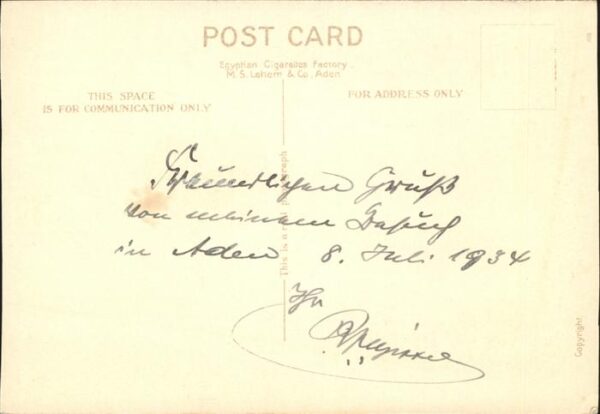 POST CARD
Egyptian Cigarettes Factory.
M. S. Lehem & Co., Aden
THIS SPACE
IS FOR COMMUNICATION ONLY
FOR ADDRESS ONLY
This is a real photograph
Freundlichen Gruß
von meinem Besuch
in Aden 8. Juli 1934
Ihr
Copyright.